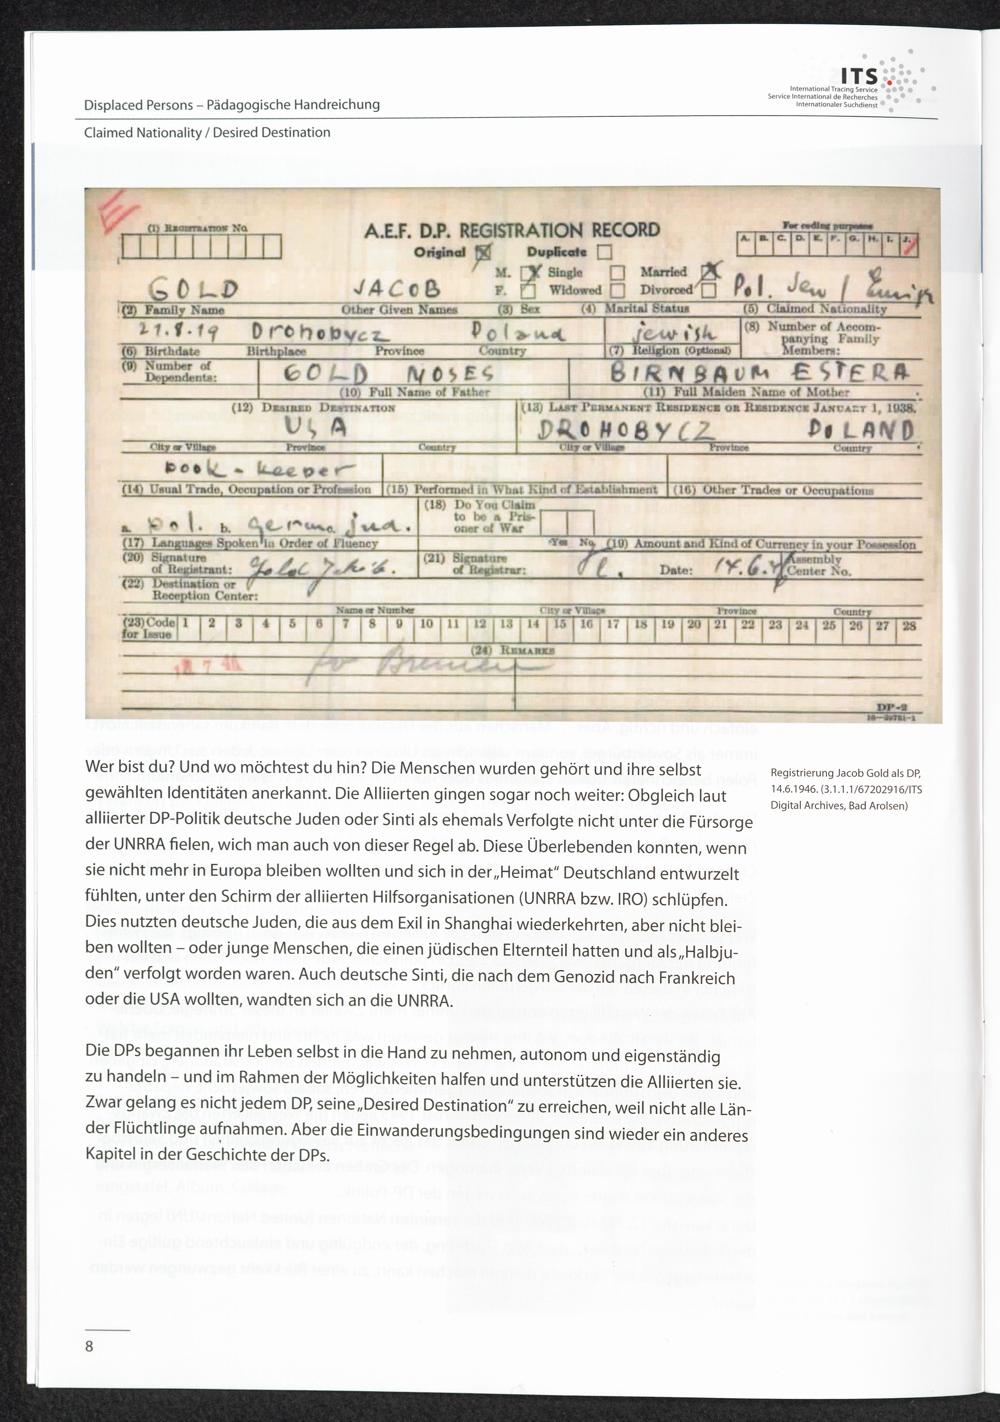 ITS
International Tracing Service
Service International de Recherches
Internationaler Suchdienst
Displaced Persons – Pädagogische Handreichung
Claimed Nationality / Desired Destination
E
(1) Registration No.
A.E.F. D.P. REGISTRATION RECORD
For coding purposes
Original Duplicate
A. B. C. D. E. F. G. H. I. J.
M. Single Married
F. Widowed Divorced
GOLD JACOB Pol. Jew /
(2) Family Name Other Given Names (3) Sex (4) Marital Status (5) Claimed Nationality
21.8.19 Drohobycz Poland jewish (8) Number of Accom-
panying Family
Members:
(6) Birthdate Birthplace Province Country (7) Religion (Optional)
(9) Number of
Dependents:
GOLD MOSES BIRNBAUM ESTERA
(10) Full Name of Father (11) Full Maiden Name of Mother
(12) Desired Destination (13) Last Permanent Residence or Residence January 1, 1938.
USA DROHOBYCZ POLAND
City or Village Province Country City or Village Province Country
book-keeper
(14) Usual Trade, Occupation or Profession (15) Performed in What Kind of Establishment (16) Other Trades or Occupations
a. pol. b. jud.
(18) Do You Claim
to be a Pris-
oner of War
(17) Languages Spoken in Order of Fluency Yes No (19) Amount and Kind of Currency in your Possession
(20) Signature
of Registrant: Gold
(21) Signature
of Registrar:
Date: 14.6. Assembly
Center No.
(22) Destination or
Reception Center:
Name or Number City or Village Province Country
(23) Code
for Issue
1 2 3 4 5 6 7 8 9 10 11 12 13 14 15 16 17 18 19 20 21 22 23 24 25 26 27 28
(24) Remarks
Bremen
DP-2
16—39781-1
Wer bist du? Und wo möchtest du hin? Die Menschen wurden gehört und ihre selbst
gewählten Identitäten anerkannt. Die Alliierten gingen sogar noch weiter: Obgleich laut
alliierter DP-Politik deutsche Juden oder Sinti als ehemals Verfolgte nicht unter die Fürsorge
der UNRRA fielen, wich man auch von dieser Regel ab. Diese Überlebenden konnten, wenn
sie nicht mehr in Europa bleiben wollten und sich in der „Heimat“ Deutschland entwurzelt
fühlten, unter den Schirm der alliierten Hilfsorganisationen (UNRRA bzw. IRO) schlüpfen.
Dies nutzten deutsche Juden, die aus dem Exil in Shanghai wiederkehrten, aber nicht blei-
ben wollten – oder junge Menschen, die einen jüdischen Elternteil hatten und als „Halbju-
den“ verfolgt worden waren. Auch deutsche Sinti, die nach dem Genozid nach Frankreich
oder die USA wollten, wandten sich an die UNRRA.
Registrierung Jacob Gold als DP,
14.6.1946. (3.1.1.1/67202916/ITS
Digital Archives, Bad Arolsen)
Die DPs begannen ihr Leben selbst in die Hand zu nehmen, autonom und eigenständig
zu handeln – und im Rahmen der Möglichkeiten halfen und unterstützen die Alliierten sie.
Zwar gelang es nicht jedem DP, seine „Desired Destination“ zu erreichen, weil nicht alle Län-
der Flüchtlinge aufnahmen. Aber die Einwanderungsbedingungen sind wieder ein anderes
Kapitel in der Geschichte der DPs.
8